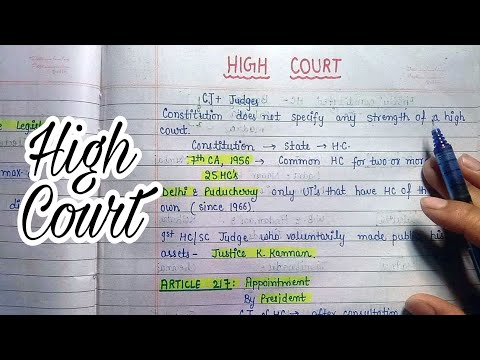 HIGH COURT
CJ + Judges
Constitution does not specify any strength of a high
court.
Constitution → State → H.C.
7th CA, 1956 → Common HC for two or mor
25 HC's
Delhi & Puducherry only UT's that have HC of th
own (since 1966)
1st HC/SC Judge who voluntarily made public his
assets - Justice K. Kannan.
ARTICLE 217: Appointment
By President
CJ of HC → after consultation
e Legis
max
di
High
Court